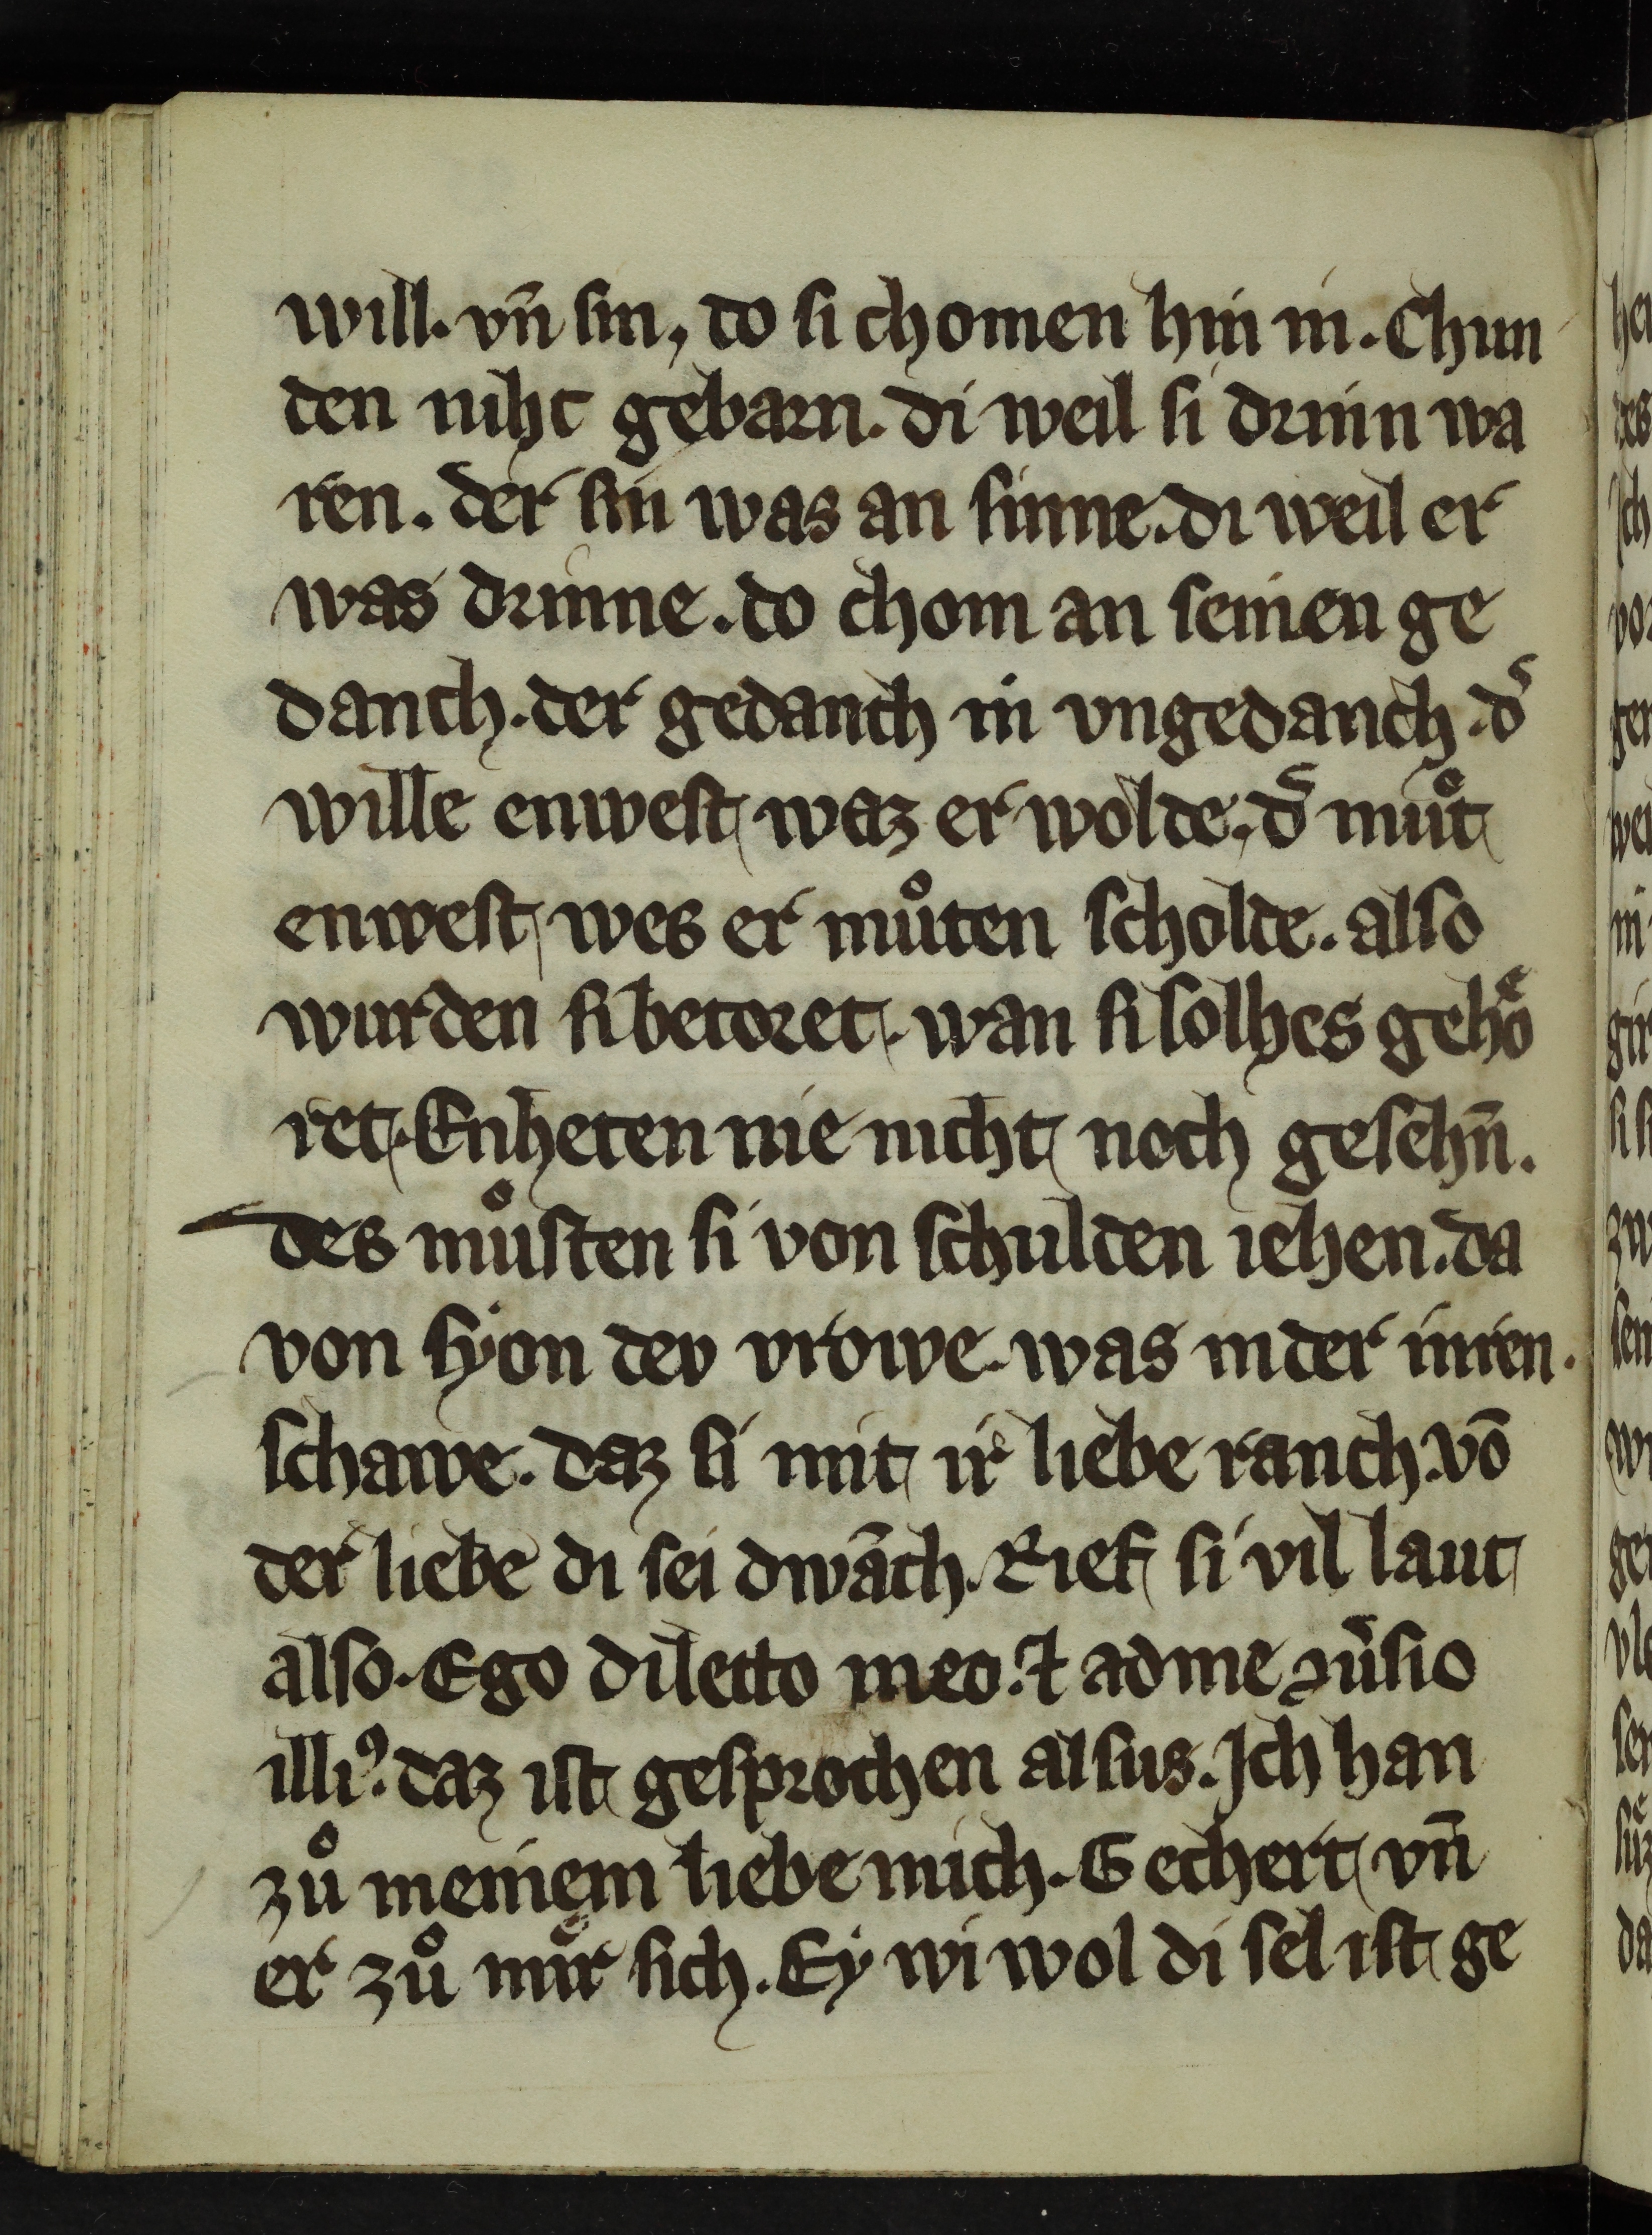 will. vn̄ sin, do si chomen hin in. Chun
den niht gebarn. di weil si drinn wa
ren. der sin was an sinne. di weil er
was drinne. do chom an seinen ge
danch. der gedanch in vngedanch. d͛
wille enwest waz er wolde. d͛ muͦt
enwest wes er muͦten scholde. also
wurden si betoret. wan si solhes gehoͤ
ret. Enheten nie nicht noch gesehn̄.
des muͦsten si von schulden iehen. da
von syon dev vrowe. was in der innren.
schawe. daz si mit ir liebe ranch. vō
der liebe di sei dwāch. Rief si vil laut
also. Ego dilecto meo. ⁊ ad me ꝯu͛sio
illiꝰ. daz ist gesprochen alsus. Ich han
zuͦ meinem liebe mich. Gechert vn̄
er zuͦ mir sich. Ey wi wol di sel ist ge